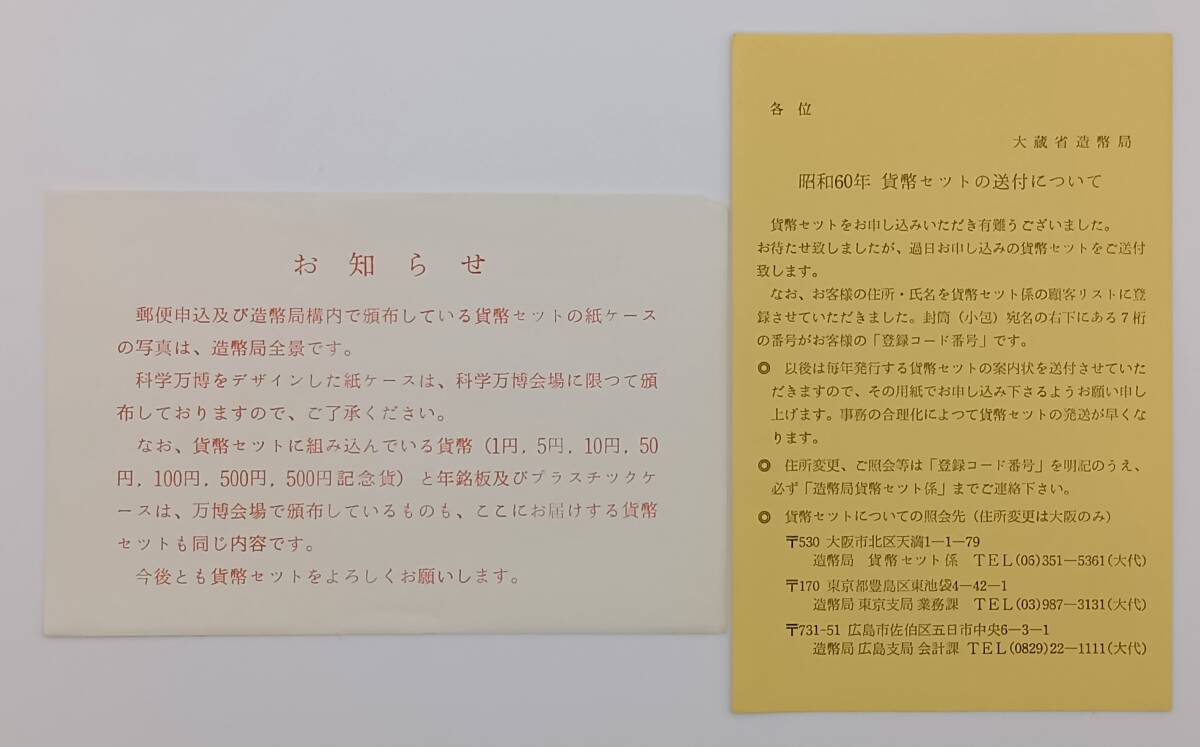 お知らせ
郵便申込及び造幣局構内で頒布している貨幣セットの紙ケース
の写真は、造幣局全景です。
科学万博をデザインした紙ケースは、科学万博会場に限つて頒
布しておりますので、ご了承ください。
なお、貨幣セットに組み込んでいる貨幣（1円，5円，10円，50
円，100円，500円，500円記念貨）と年銘板及びプラスチツクケ
ースは、万博会場で頒布しているものも、ここにお届けする貨幣
セットも同じ内容です。
今後とも貨幣セットをよろしくお願いします。
各位
大蔵省造幣局
昭和60年 貨幣セツトの送付について
貨幣セットをお申し込みいただき有難うございました。
お待たせ致しましたが、過日お申し込みの貨幣セットをご送付
致します。
なお、お客様の住所・氏名を貨幣セット係の顧客リストに登
録させていただきました。封筒（小包）宛名の右下にある７桁
の番号がお客様の「登録コード番号」です。
◎ 以後は毎年発行する貨幣セットの案内状を送付させていた
だきますので、その用紙でお申し込み下さるようお願い申し
上げます。事務の合理化によつて貨幣セットの発送が早くな
ります。
◎ 住所変更、ご照会等は「登録コード番号」を明記のうえ、
必ず「造幣局貨幣セット係」までご連絡下さい。
◎ 貨幣セットについての照会先（住所変更は大阪のみ）
〒530 大阪市北区天満1―1―79
造幣局 貨幣セット係 TEL(06)351―5361(大代)
〒170 東京都豊島区東池袋4―42―1
造幣局東京支局業務課 TEL(03)987―3131(大代)
〒731-51 広島市佐伯区五日市中央6―3―1
造幣局広島支局会計課 TEL(0829)22―1111(大代)